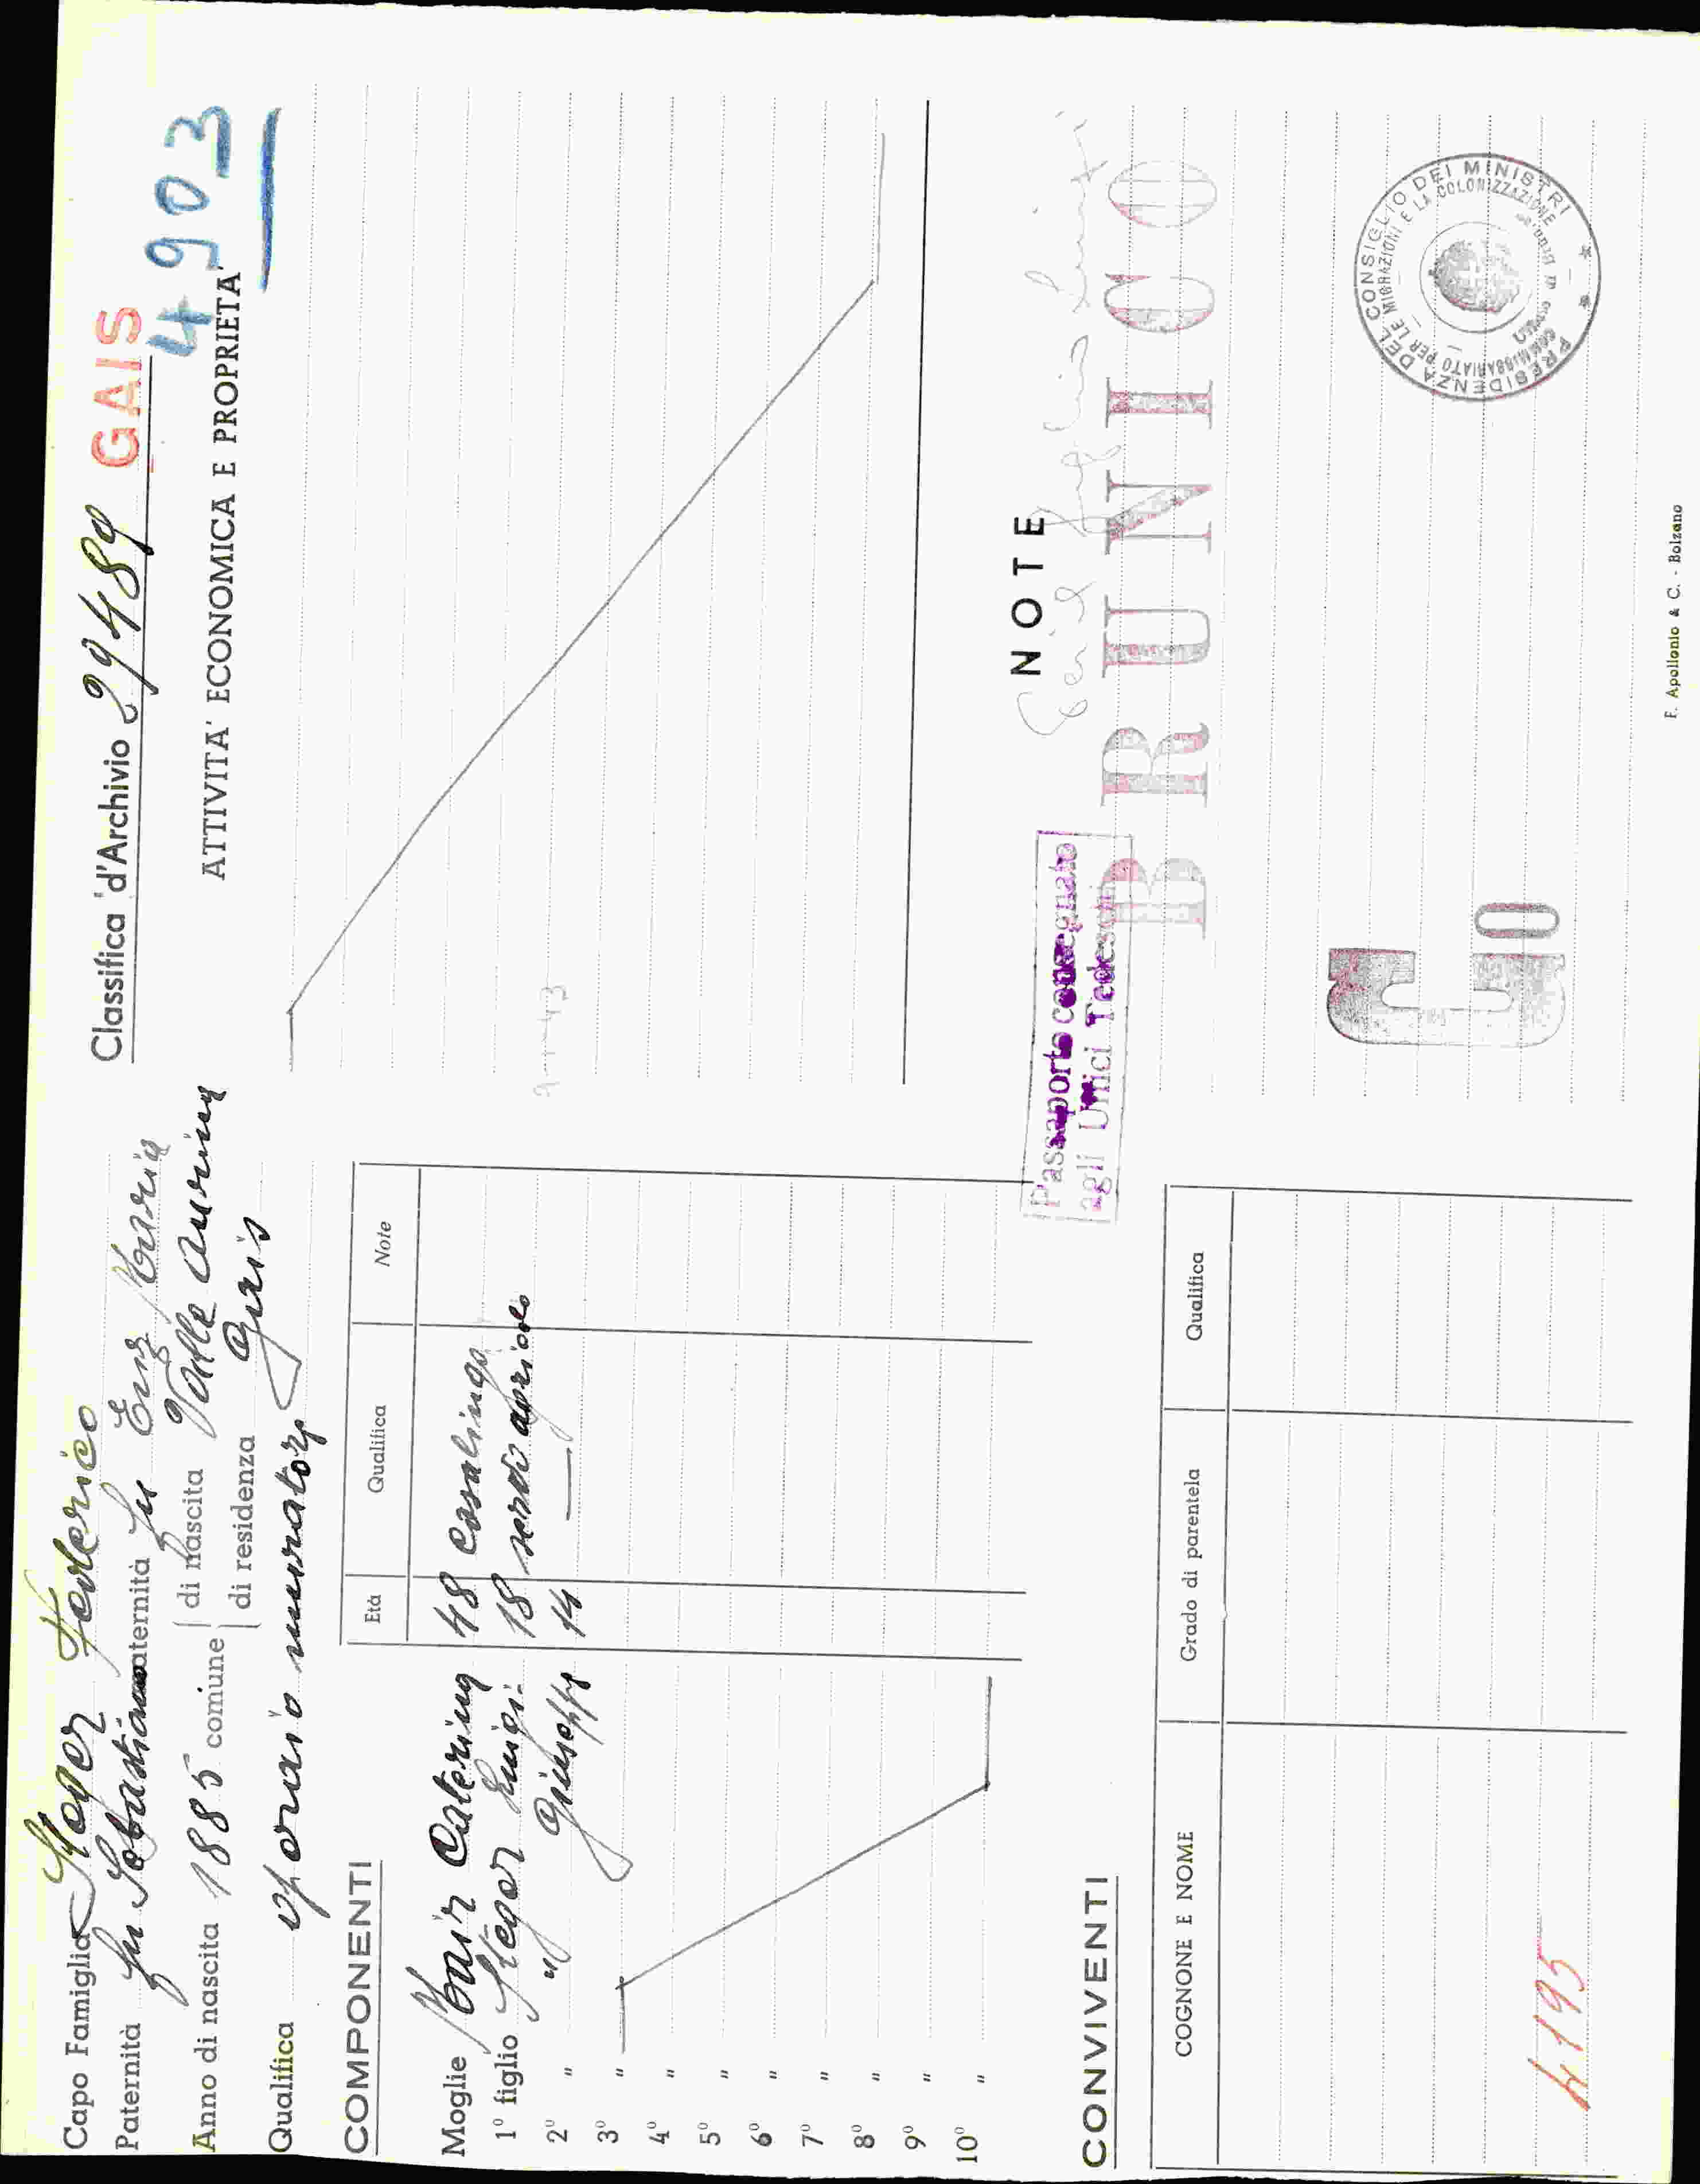 Capo Famiglia Steger Federico
Paternità fu Sebastiano maternità fu Enz Maria
Anno di nascita 1885 comune di nascita Valle Aurina
di residenza Gais
Qualifica operaio muratore
COMPONENTI
Età Qualifica Note
Moglie Mair Caterina 48 casalinga
1º figlio Steger Luigi 18 servo agricolo
2º " " Giuseppe 14 —
3º "
4º "
5º "
6º "
7º "
8º "
9º "
10º "
CONVIVENTI
COGNONE E NOME Grado di parentela Qualifica
4195
Classifica d'Archivio 29489 GAIS
4903
ATTIVITA' ECONOMICA E PROPRIETA'
NOTE
Passaporto consegnato
agli Uffici Tedeschi
BRUNICO
G
10
PRESIDENZA DEL CONSIGLIO DEI MINISTRI
COMMISSARIATO PER LE MIGRAZIONI E LA COLONIZZAZIONE
F. Apollonio & C. - Bolzano